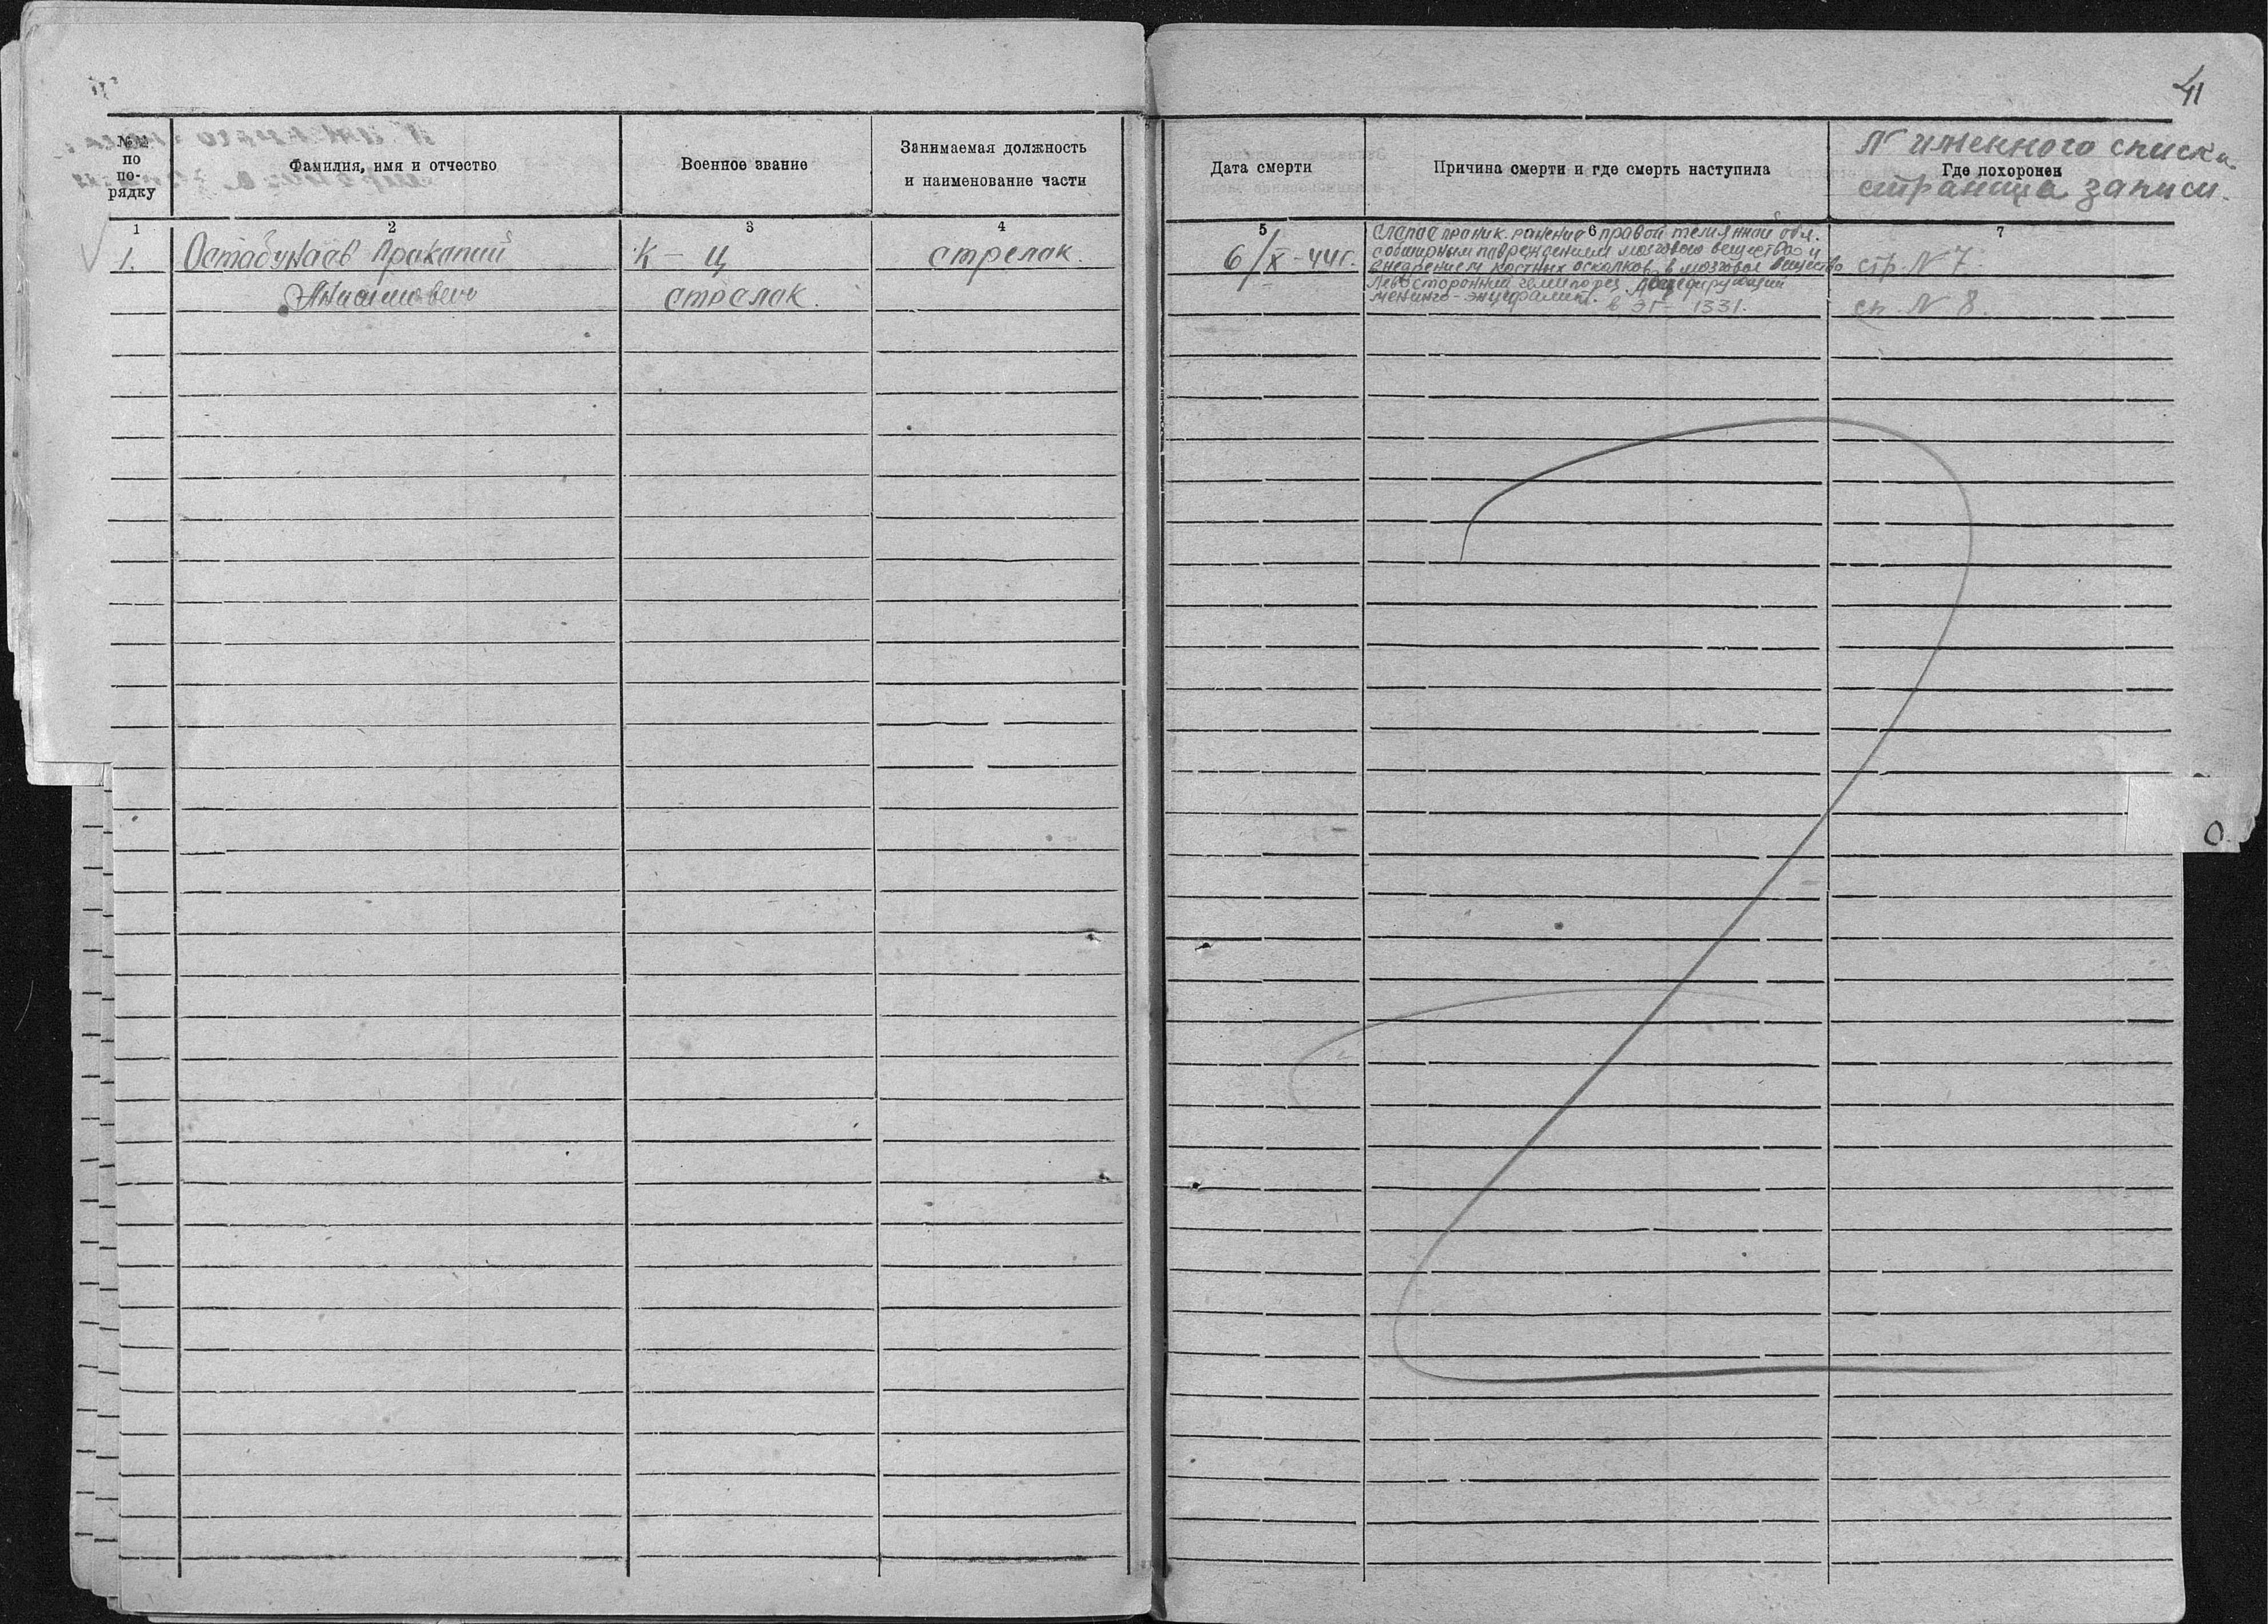 41
№№ по по- рядку
Фамилия, имя и отчество
Военное звание
Занимаемая должность
и наименование части
Дата смерти
Причина смерти и где смерть наступила
N именного списка
Где похоронен
страница записи.
1 2 3 4 5 6 7
1. Остабунаев Пракапий К - ц стрелок. 6/X-44г.
стрелок.
Слепое проник. ранение правой темянной обл.
с обширным повреждением мозгового вещества и
внедрением костных осколков в мозговое вещество
Левосторонний гемипарез,
менинго-энцефалит. в ЭГ- 1331.
стр. N 7.
сп. N 8.
О.